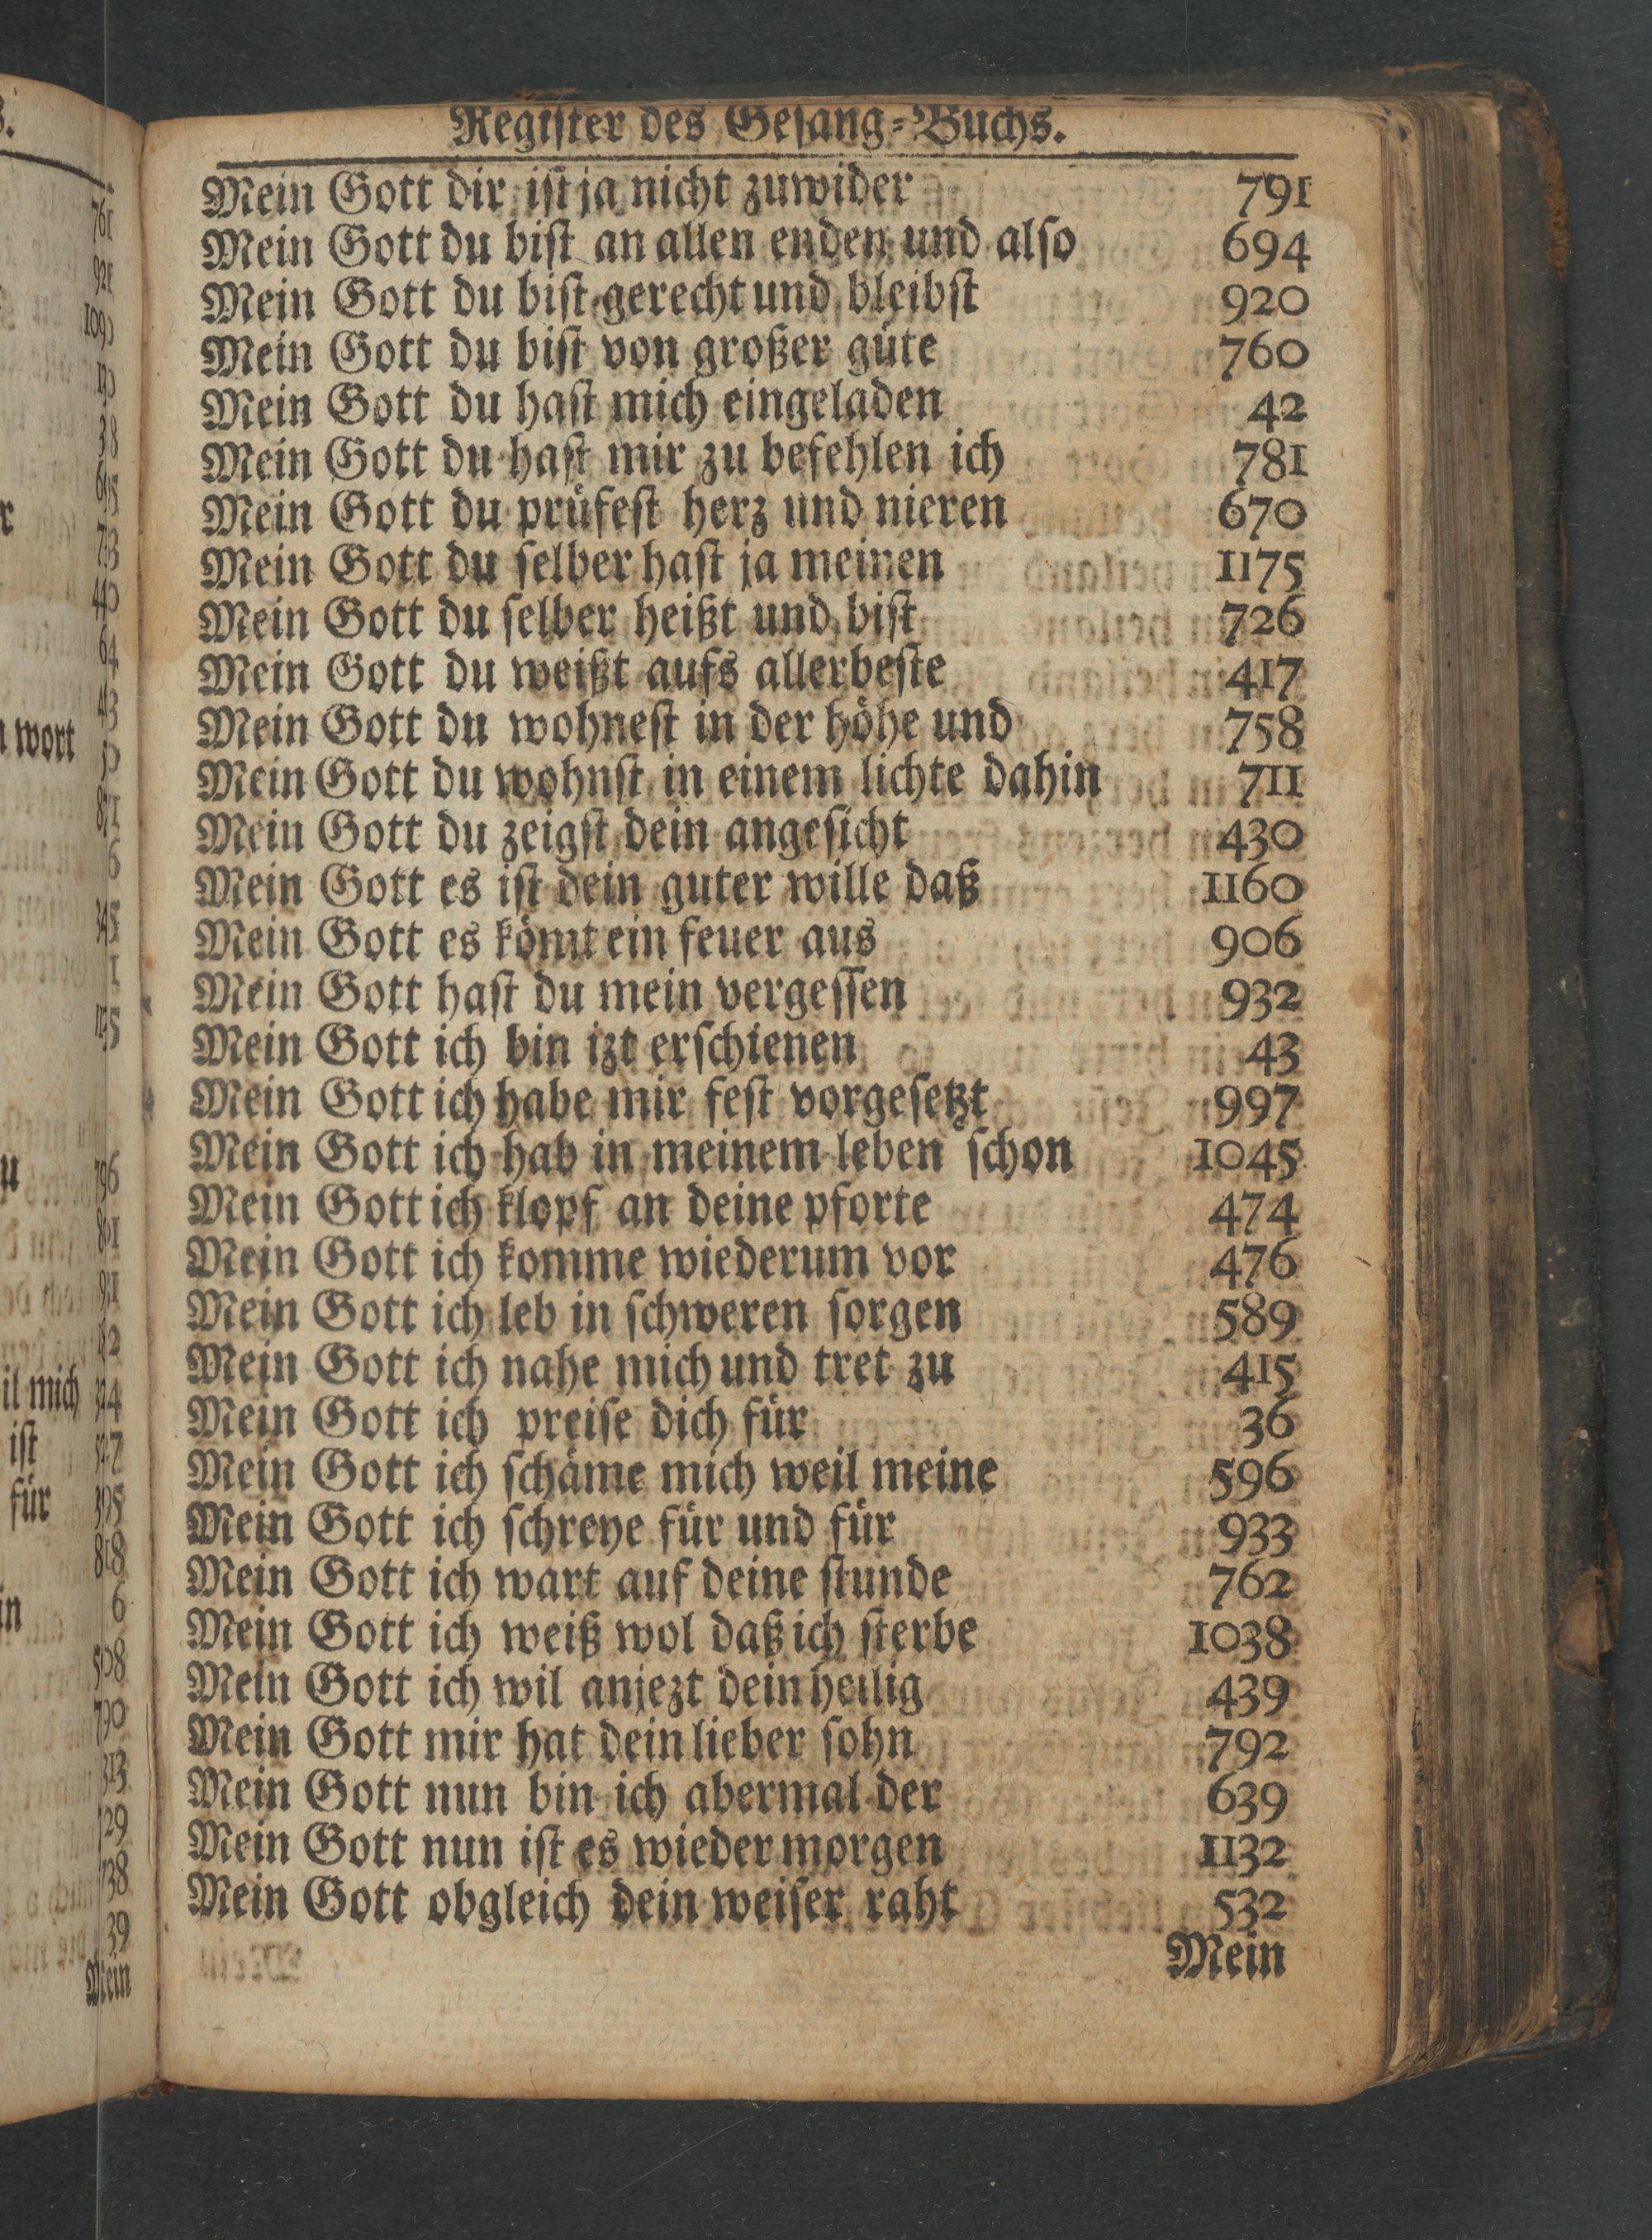 Register des Gesang-Buchs.
Mein Gott dir ist ja nicht zuwider 791
Mein Gott du bist an allen enden und also 694
Mein Gott du bist gerecht und bleibst 920
Mein Gott du bist von großer güte 760
Mein Gott du hast mich eingeladen 42
Mein Gott du hast mir zu befehlen ich 781
Mein Gott du prüfest herz und nieren 670
Mein Gott du selber hast ja meinen 1175
Mein Gott du selber heißt und bist 726
Mein Gott du weißt aufs allerbeste 417
Mein Gott du wohnest in der höhe und 758
Mein Gott du wohnst in einem lichte dahin 711
Mein Gott du zeigst dein angesicht 430
Mein Gott es ist dein guter wille daß 1160
Mein Gott es kömt ein feuer aus 906
Mein Gott hast du mein vergessen 932
Mein Gott ich bin izt erschienen 43
Mein Gott ich habe mir fest vorgesetzt 997
Mein Gott ich hab in meinem leben schon 1045
Mein Gott ich klopf an deine pforte 474
Mein Gott ich komme wiederum vor 476
Mein Gott ich leb in schweren sorgen 589
Mein Gott ich nahe mich und tret zu 415
Mein Gott ich preise dich für 36
Mein Gott ich schäme mich weil meine 596
Mein Gott ich schreye für und für 933
Mein Gott ich wart auf deine stunde 762
Mein Gott ich weiß wol daß ich sterbe 1038
Mein Gott ich wil anjezt dein heilig 439
Mein Gott mir hat dein lieber sohn 792
Mein Gott nun bin ich abermal der 639
Mein Gott nun ist es wieder morgen 1132
Mein Gott obgleich dein weiser raht 532
Mein